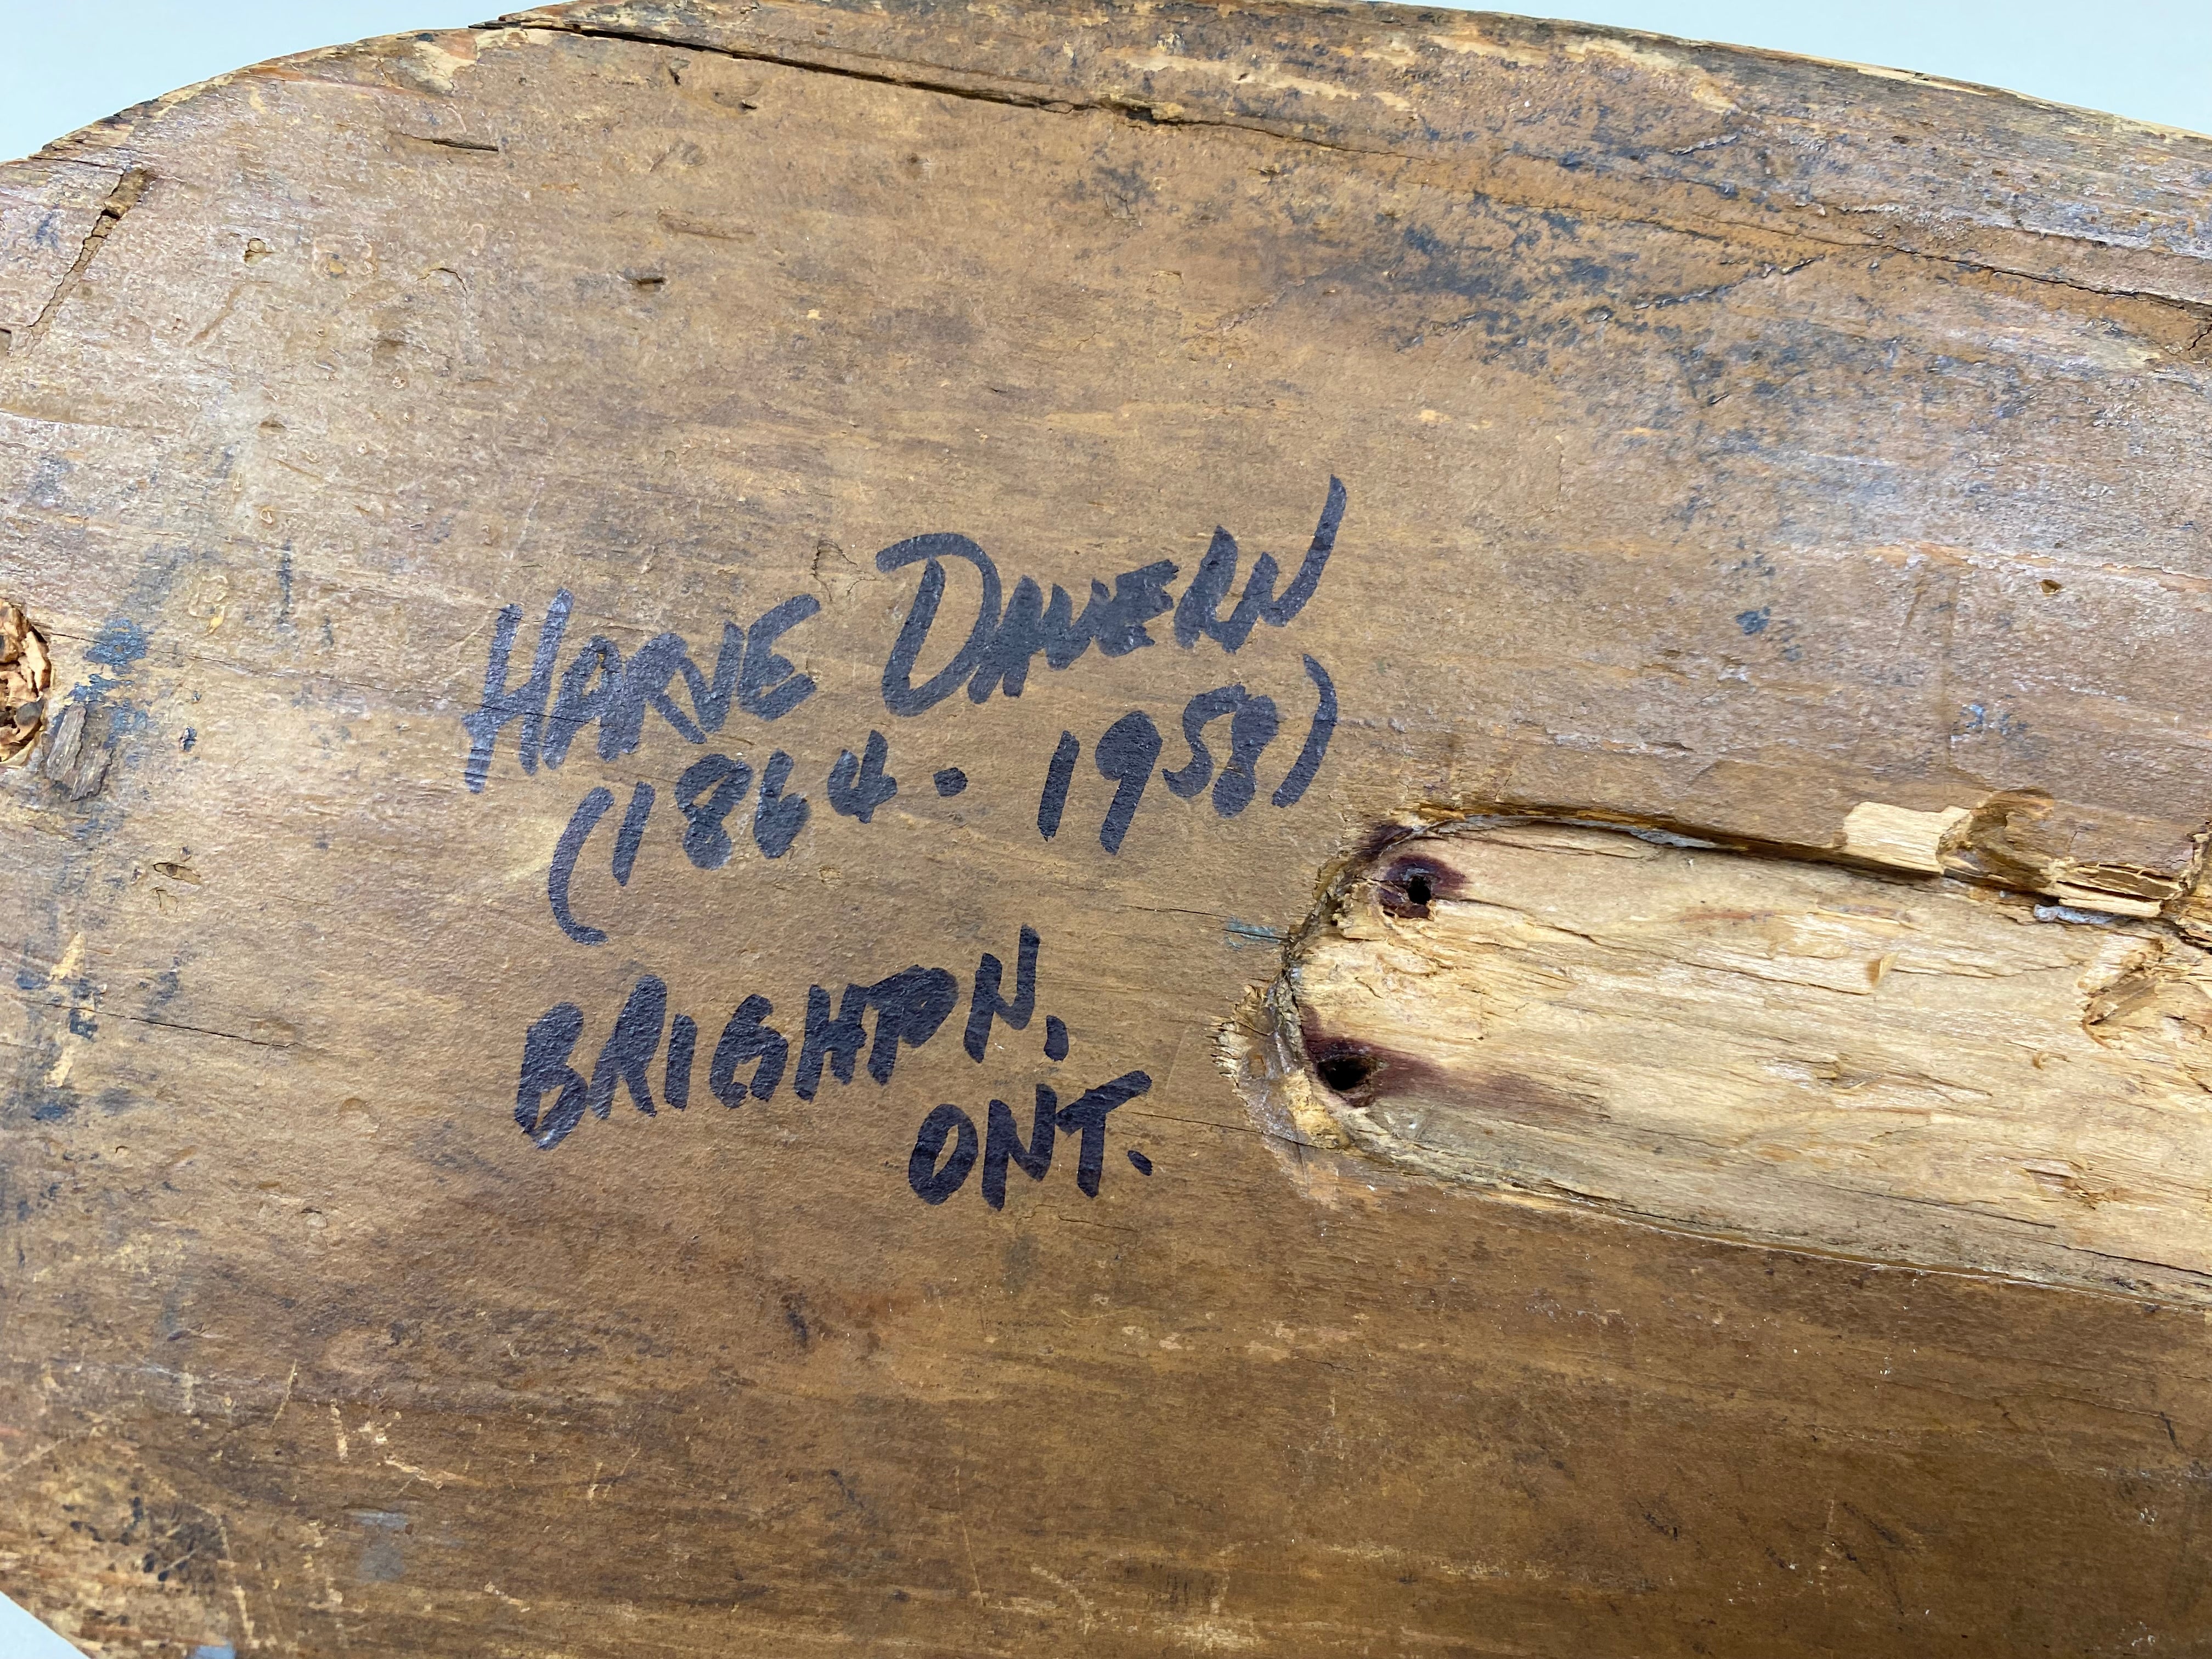 HARVE DAVERN
(1864 - 1958)
BRIGHTON,
ONT.